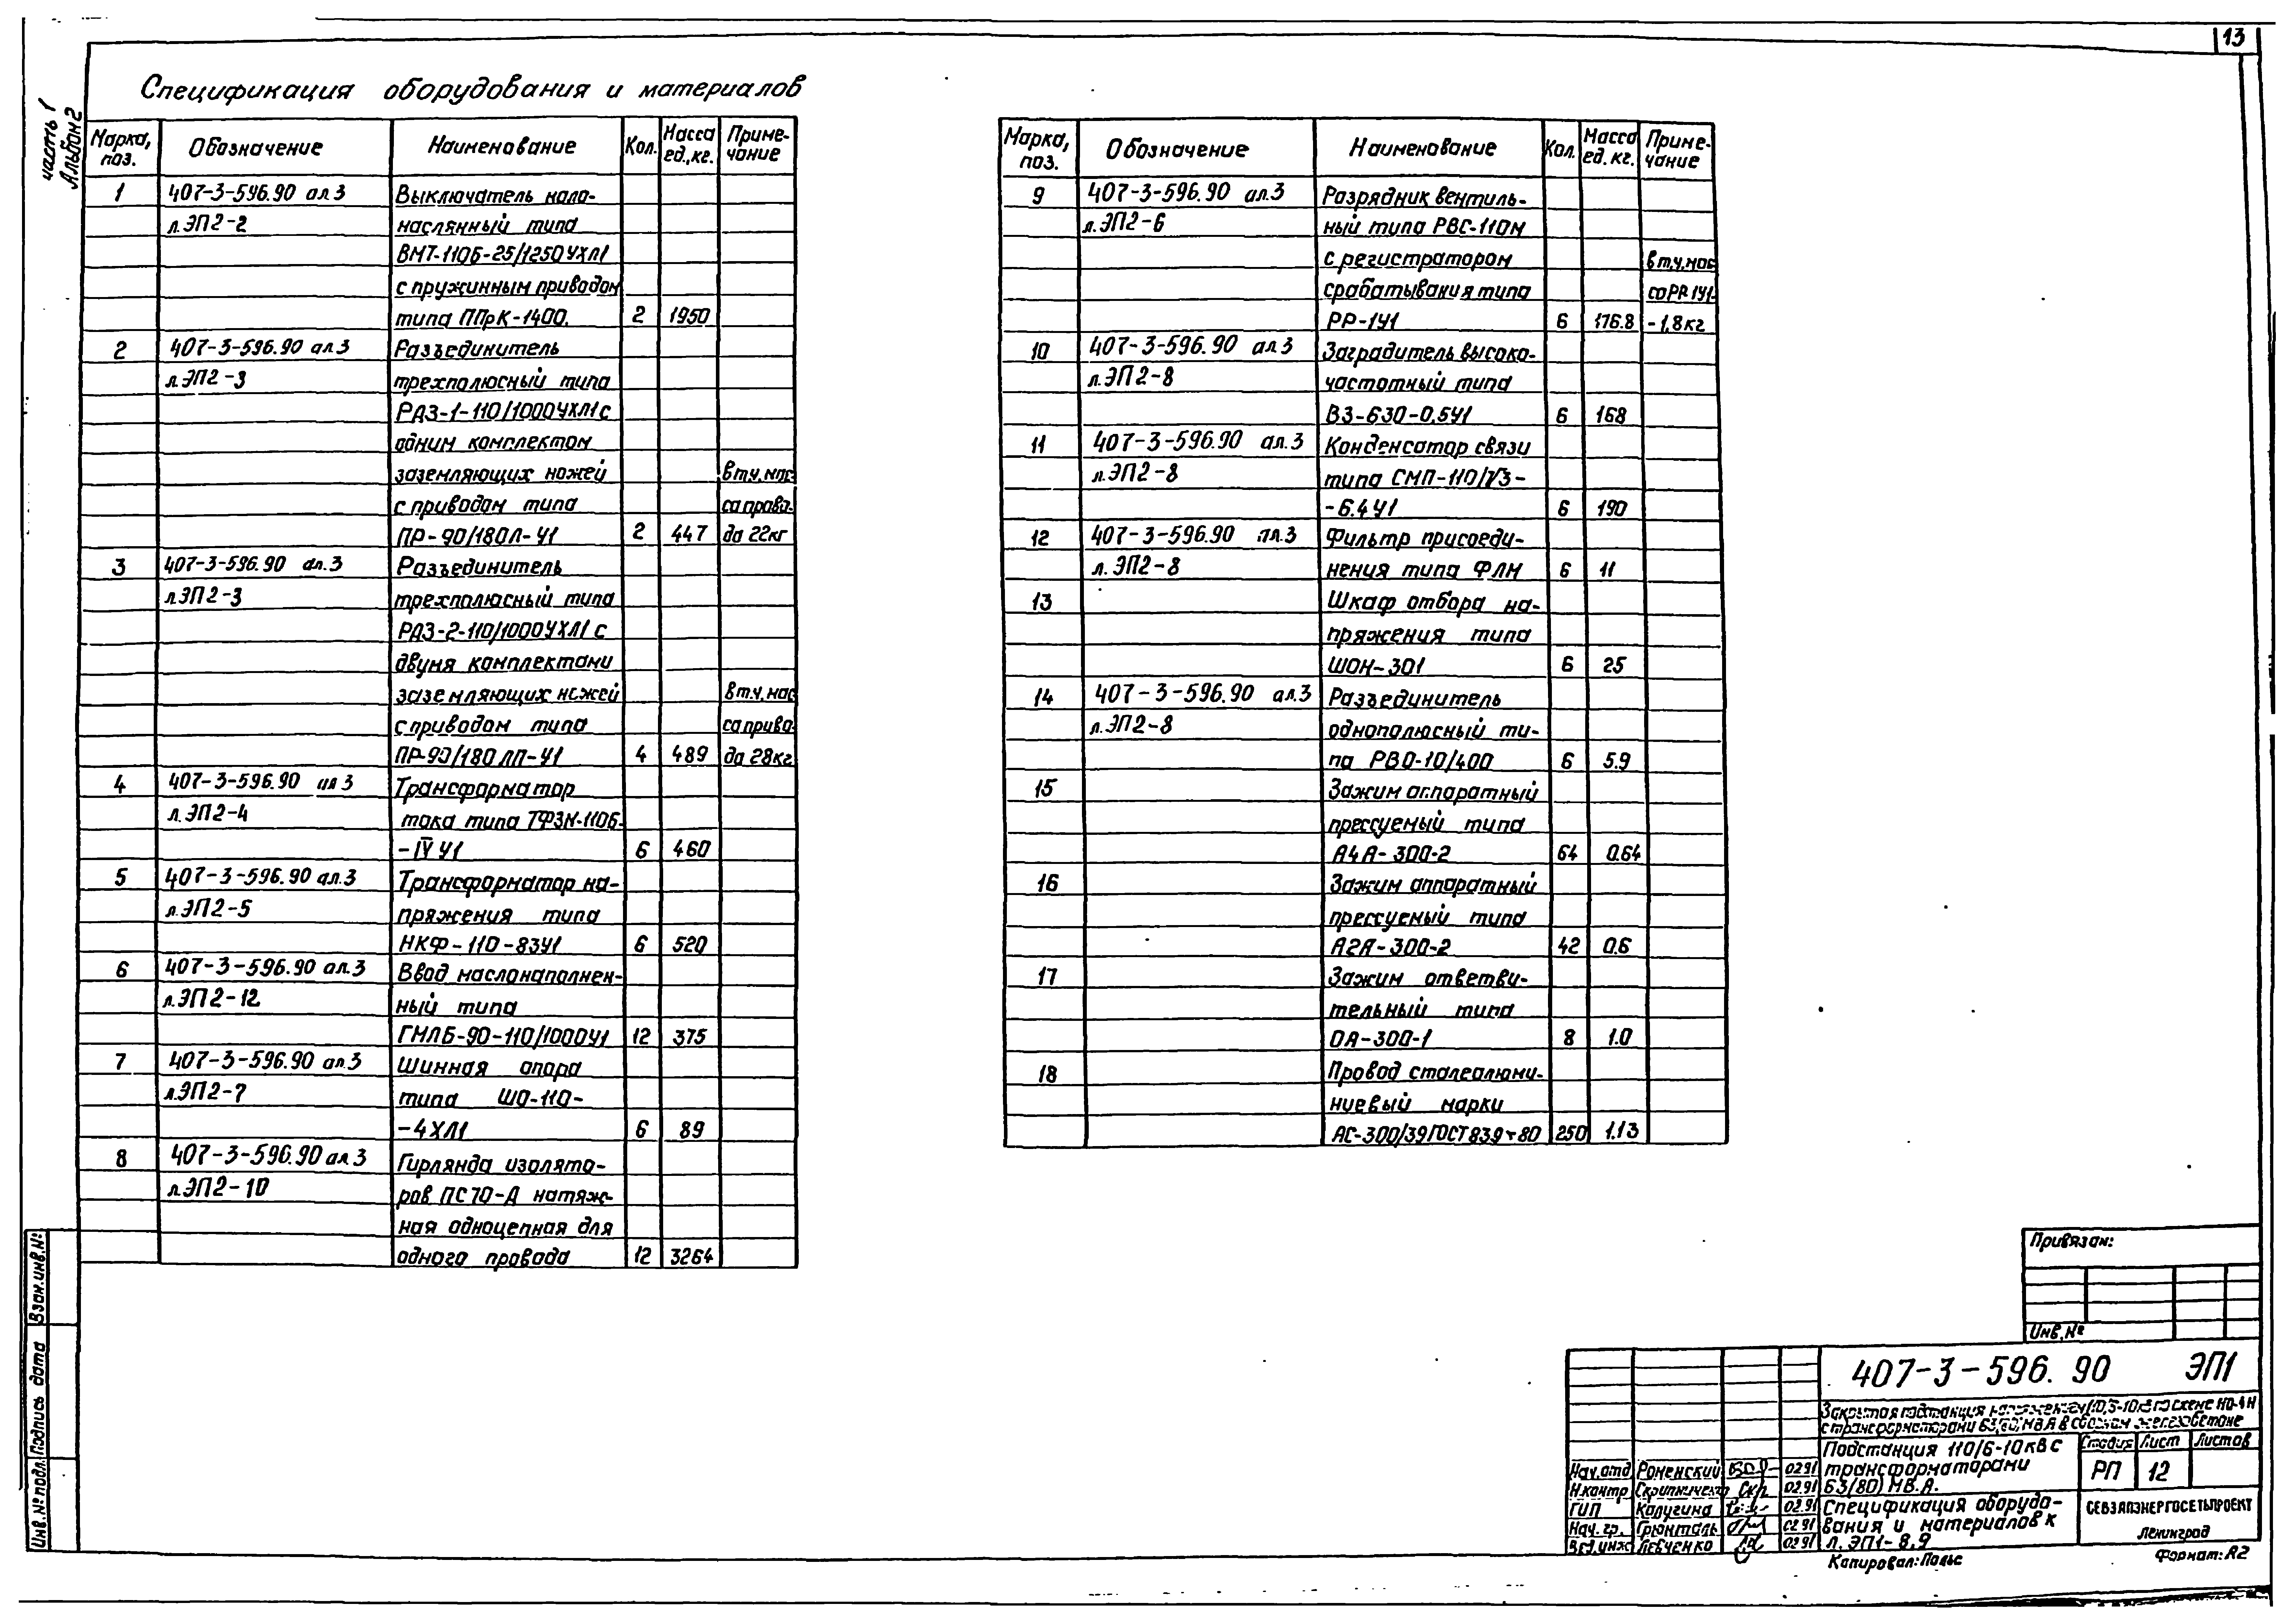 13
часть 1
Альбом 2
Спецификация оборудования и материалов
Марка, поз. Обозначение Наименование Кол. Масса ед.,кг. Приме-чание
1 407-3-596.90 ал.3 Выключатель мало-
л.ЭП2-2 масляный типа
ВМТ-110Б-25/1250УХЛ1
с пружинным приводом
типа ППрК-1400. 2 1950
2 407-3-596.90 ал.3 Разъединитель
л.ЭП2-3 трехполюсный типа
РДЗ-1-110/1000УХЛ1 с
одним комплектом
заземляющих ножей в т.ч. мас-
с приводом типа са приво-
ПР-90/180Л-У1 2 447 да 22кг
3 407-3-596.90 ал.3 Разъединитель
л.ЭП2-3 трехполюсный типа
РДЗ-2-110/1000УХЛ1 с
двумя комплектами
заземляющих ножей в т.ч. мас-
с приводом типа са приво-
ПР-90/180ЛП-У1 4 489 да 28кг
4 407-3-596.90 ал.3 Трансформатор
л.ЭП2-4 тока типа ТФЗМ-110Б-
-IV У1 6 460
5 407-3-596.90 ал.3 Трансформатор на-
л.ЭП2-5 пряжения типа
НКФ-110-83У1 6 520
6 407-3-596.90 ал.3 Ввод маслонаполнен-
л.ЭП2-12 ный типа
ГМЛБ-90-110/1000У1 12 375
7 407-3-596.90 ал.3 Шинная опора
л.ЭП2-7 типа ШО-110-
-4ХЛ1 6 89
8 407-3-596.90 ал.3 Гирлянда изолято-
л.ЭП2-10 ров ПС70-Д натяж-
ная одноцепная для
одного провода 12 3264
Марка, поз. Обозначение Наименование Кол. Масса ед. кг. Приме-чание
9 407-3-596.90 ал.3 Разрядник вентиль-
л.ЭП2-6 ный типа РВС-110М
с регистратором в т.ч. мас-
срабатывания типа са РР-1У1-
РР-1У1 6 176.8 -1,8кг
10 407-3-596.90 ал.3 Заградитель высоко-
л.ЭП2-8 частотный типа
ВЗ-630-0,5У1 6 168
11 407-3-596.90 ал.3 Конденсатор связи
л.ЭП2-8 типа СМП-110/√3-
-6.4У1 6 190
12 407-3-596.90 ал.3 Фильтр присоеди-
л.ЭП2-8 нения типа ФПМ 6 11
13 Шкаф отбора на-
пряжения типа
ШОН-301 6 25
14 407-3-596.90 ал.3 Разъединитель
л.ЭП2-8 однополюсный ти-
па РВО-10/400 6 5.9
15 Зажим аппаратный
прессуемый типа
А4А-300-2 64 0.64
16 Зажим аппаратный
прессуемый типа
А2А-300-2 42 0.6
17 Зажим ответви-
тельный типа
ОА-300-1 8 1.0
18 Провод сталеалюми-
ниевый марки
АС-300/39 ГОСТ 839-80 250 1.13
Привязан:
Инв.№
407-3-596.90 ЭП1
Закрытая подстанция напряжением 110/6-10кВ по схеме 110-4Н
с трансформаторами 63(80) МВ.А в сборном железобетоне
Подстанция 110/6-10кВ с
трансформаторами
63(80) МВ.А.
Стадия Лист Листов
РП 12
Нач.отд Роменский 02.91
Н.контр 02.91
ГИП Калугина 02.91
Нач.гр. Грюнталь 02.91
Вед.инж Левченко 02.91
Спецификация оборудо-
вания и материалов к
л. ЭП1-8,9
СЕВЗАПЭНЕРГОСЕТЬПРОЕКТ
Ленинград
Копировал:
Формат: А2
Взам.инв.№
Подпись дата
Инв.№ подл.